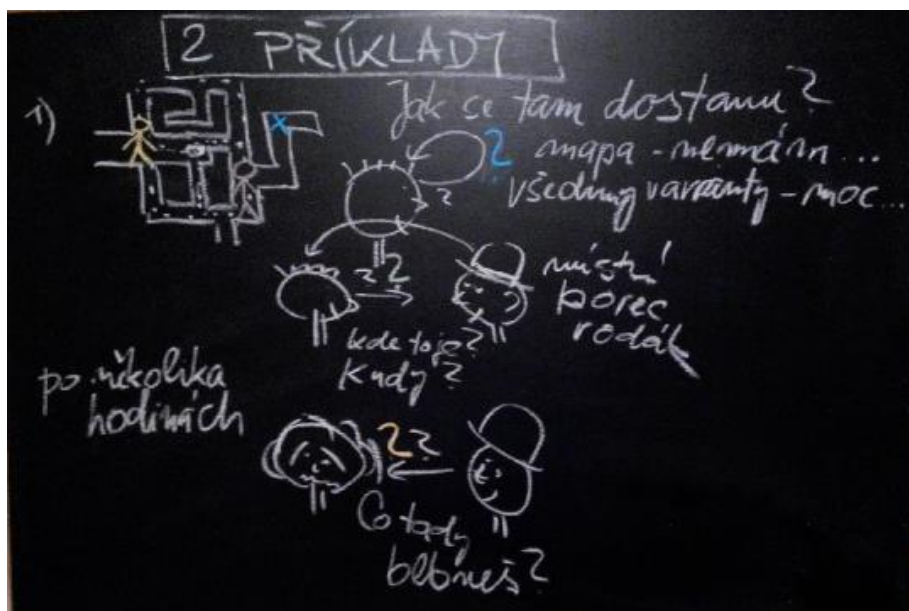 2 PŘÍKLADY
1)
Jak se tam dostanu?
2 mapa - nemám...
všechny varianty - moc...
?
? 2
místní
borec
rodák
kde to je?
Kudy?
po několika
hodinách
2?
Co tady
blbneš?